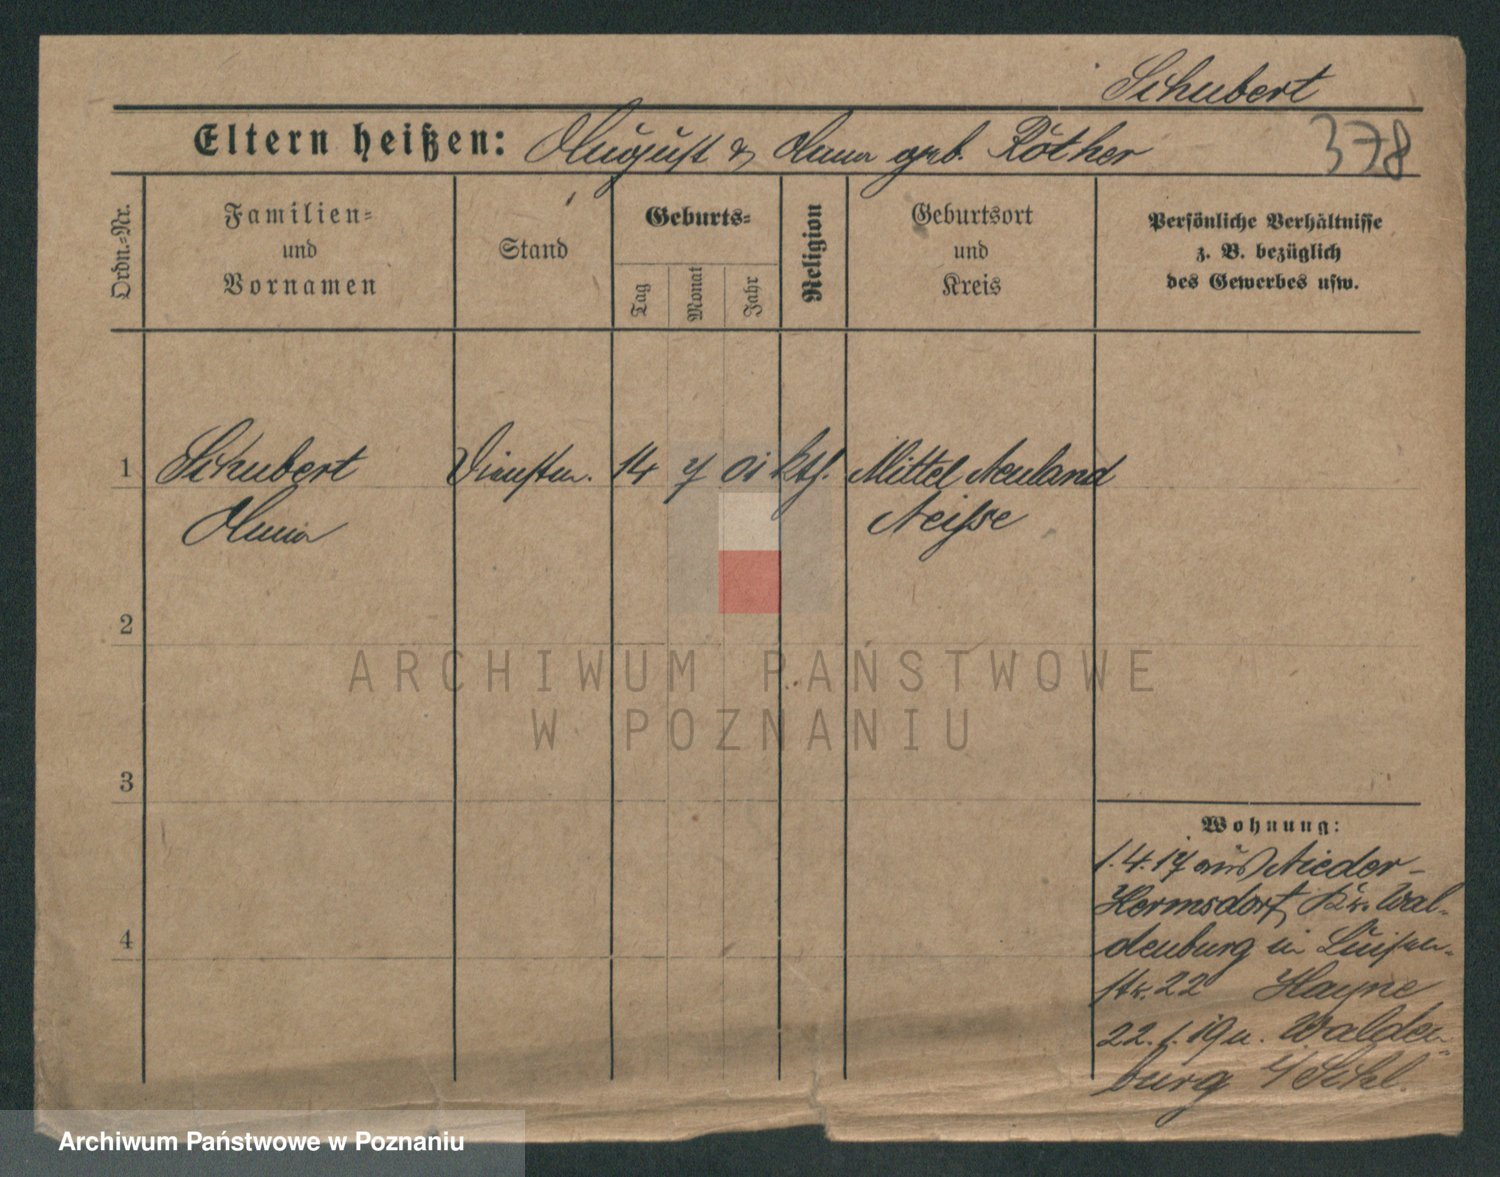 Schubert
Eltern heißen: August & Anna geb. Röther
378
Ordn.-Nr.
Familien-
und
Vornamen
Stand
Geburts-
Tag
Monat
Jahr
Religion
Geburtsort
und
Kreis
Persönliche Verhältnisse
z. B. bezüglich
des Gewerbes usw.
1 Schubert Dienstm. 14 7 01 kth. Mittel Neuland
Anna Neisse
2
3
4
ARCHIWUM PAŃSTWOWE
W POZNANIU
Wohnung:
1.4.17 aus Nieder-
Hermsdorf, Kr. Wal-
denburg in Luisen-
str. 22 Hayne
22.1.19 n. Walden-
burg i/Schl.
Archiwum Państwowe w Poznaniu